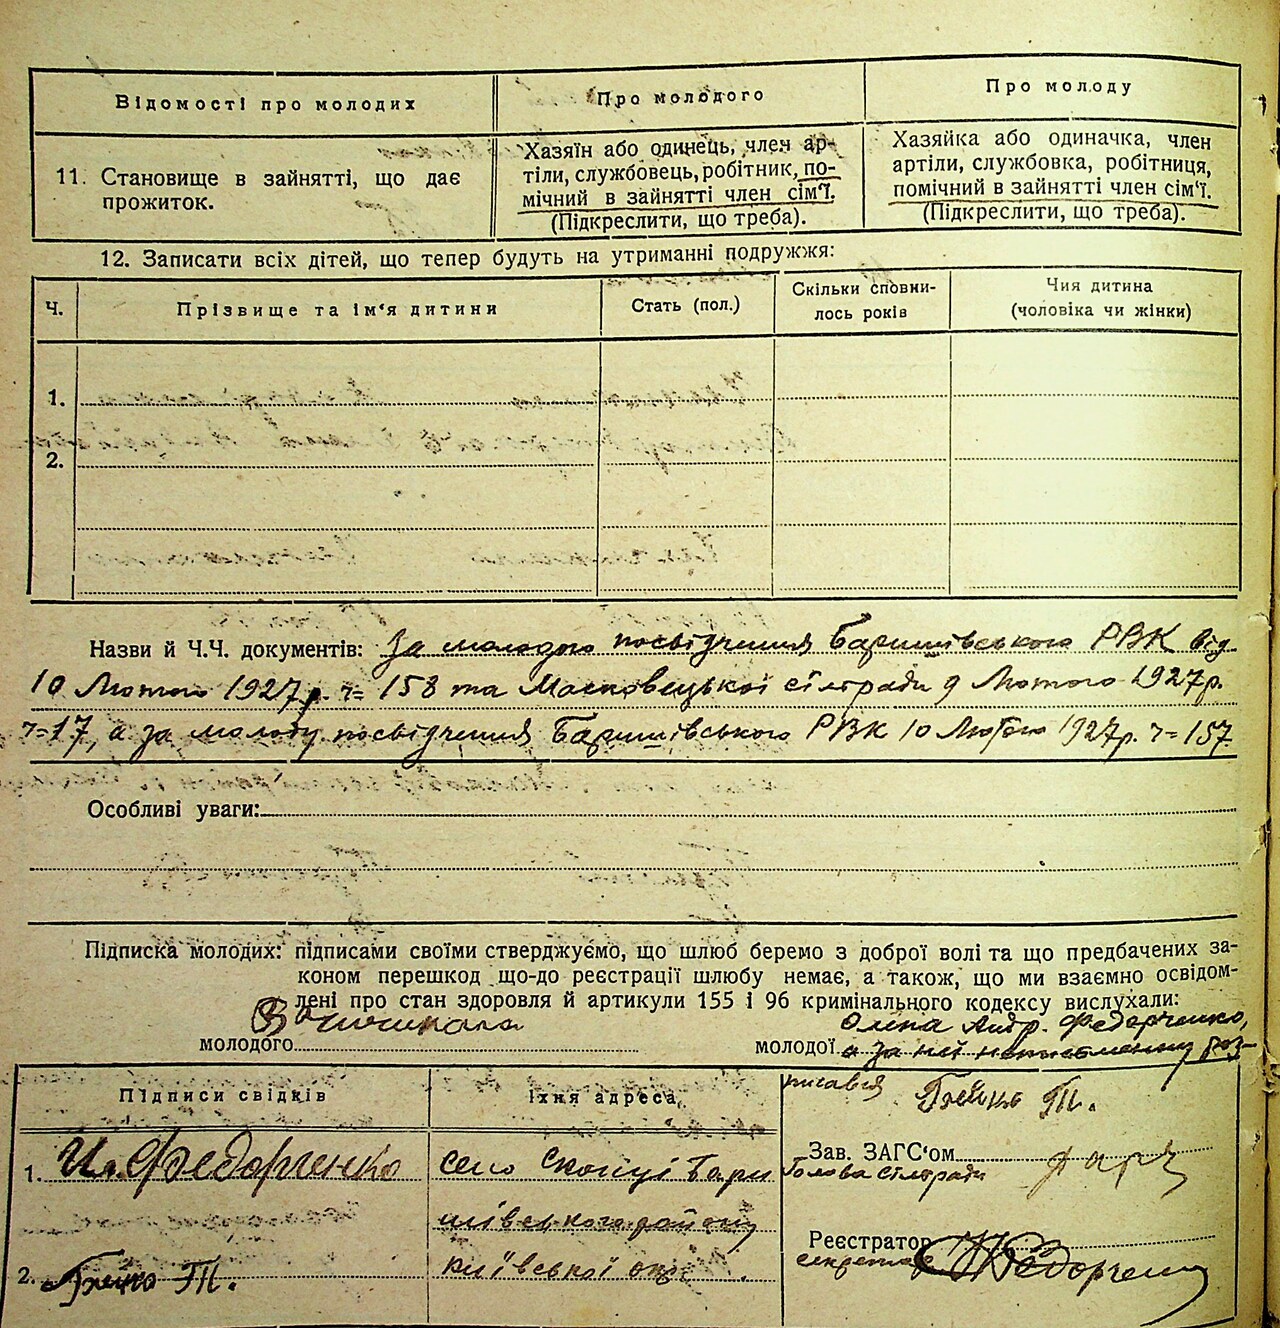 Відомості про молодих
Про молодого
Про молоду
11. Становище в зайнятті, що дає
прожиток.
Хазяїн або одинець, член ар-
тіли, службовець, робітник, по-
мічний в зайнятті член сім'ї.
(Підкреслити, що треба).
Хазяйка або одиначка, член
артіли, службовка, робітниця,
помічний в зайнятті член сім'ї.
(Підкреслити, що треба).
12. Записати всіх дітей, що тепер будуть на утриманні подружжя:
Ч.
Прізвище та ім'я дитини
Стать (пол.)
Скільки сповни-
лось років
Чия дитина
(чоловіка чи жінки)
1.
2.
Назви й Ч.Ч. документів: За молодого посвідчення Баришівського РВК від
10 Лютого 1927р. ч= 158 та Масковецької сілради 9 Лютого 1927р.
ч=17, а за молоду посвідчення Баришівського РВК 10 Лютого 1927р. ч=157
Особливі уваги:
Підписка молодих: підписами своїми стверджуємо, що шлюб беремо з доброї волі та що предбачених за-
коном перешкод що-до реєстрації шлюбу немає, а також, що ми взаємно освідом-
лені про стан здоровля й артикули 155 і 96 кримінального кодексу вислухали:
молодого
Олена Андр. Федорченко,
молодої а за неї неписьменну роз-
писався
Підписи свідків
Їхня адреса
1. Ів. Федорченко
село Скопці Бари
шівського району
Київської окр.
2.
Зав. ЗАГС'ом
Голова сілради
Реєстратор
секретар Федорченко